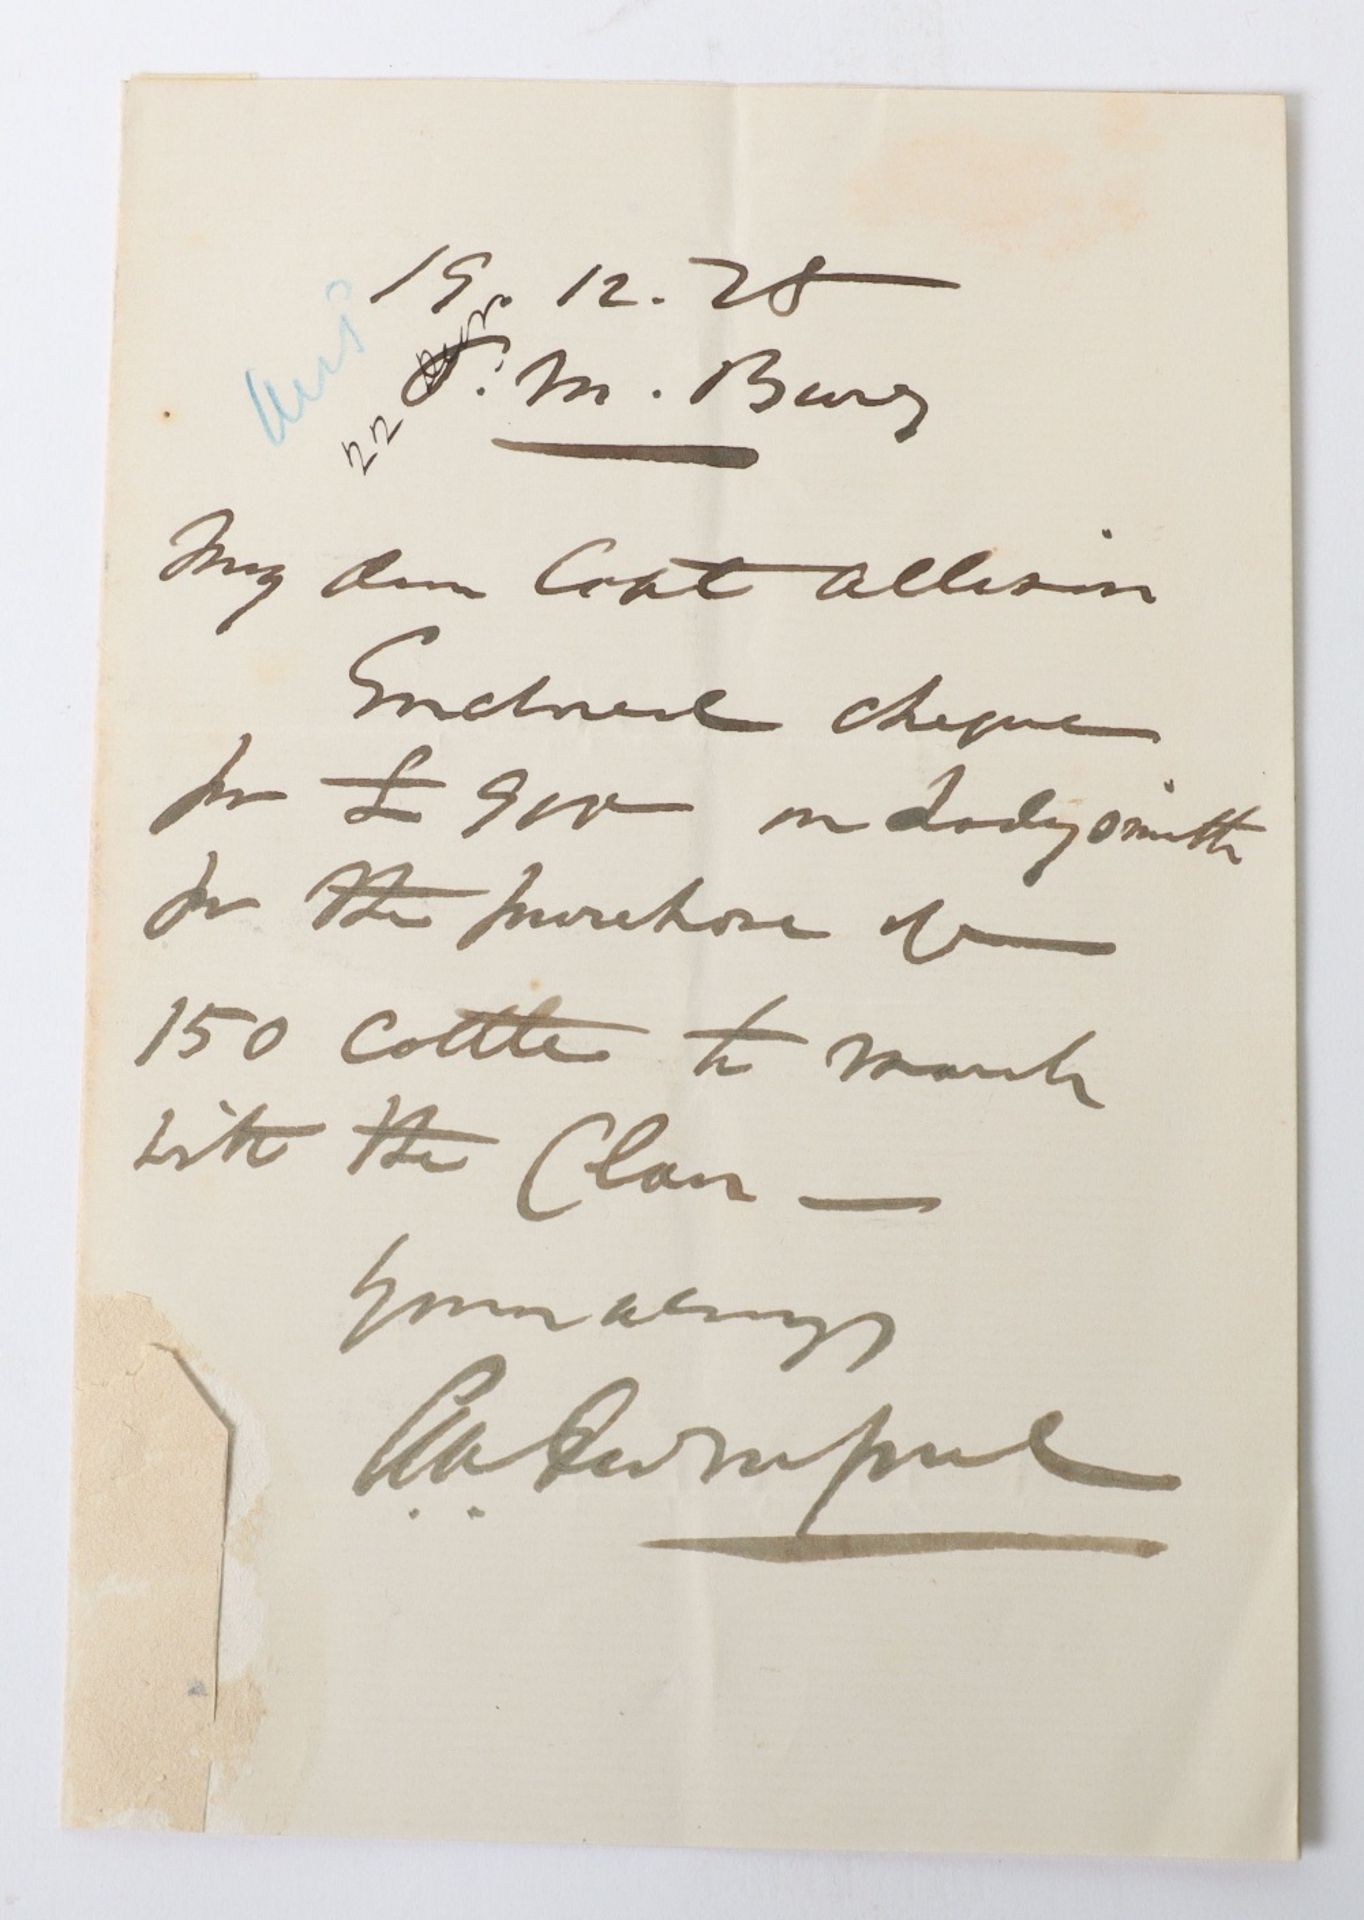 19.12.78
P.M. Burg
22
My dear Capt Allison
Enclosed cheque
for £900 on Ladysmith
for the purchase of
150 cattle to march
with the Clan —
Yours always